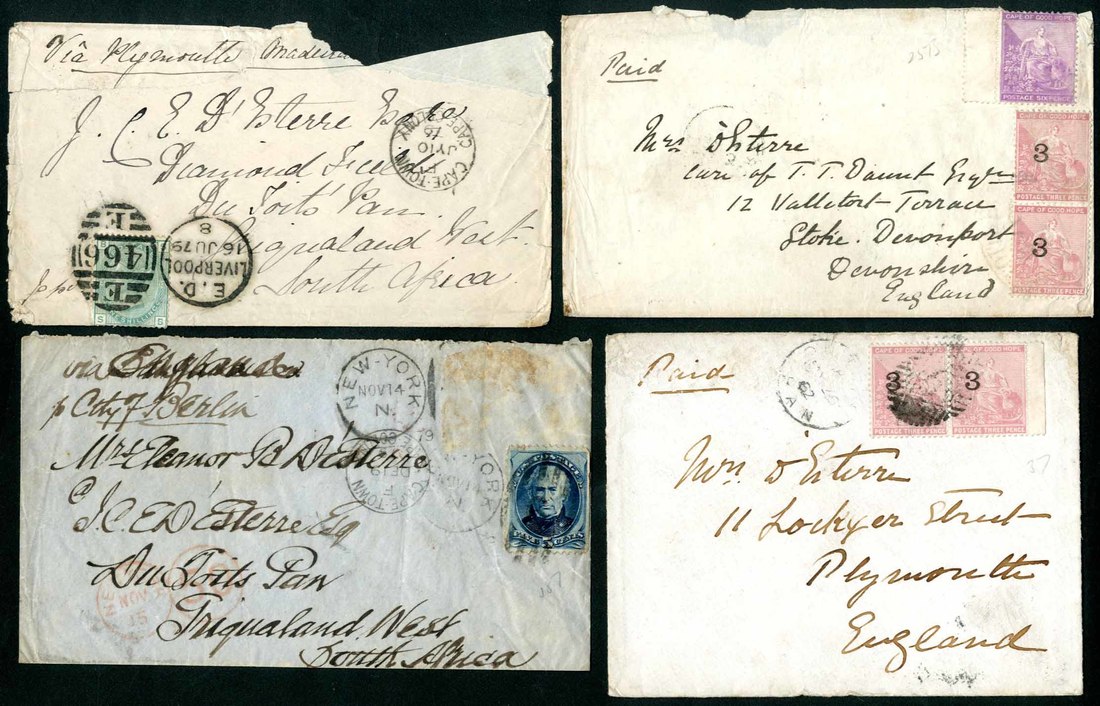 Viâ Plymouth Madeira
J. C. E. D'Esterre Esqre
Diamond Fields
Du Toits Pan
Griqualand West.
South Africa
CAPE-TOWN
JY 10
79
CAPE COLONY
466
E.D.
LIVERPOOL
16 JU 79
8
SHILLING
Paid
Mrs D'Esterre
care of T. T. Daunt Esqre
12 Valletort Terrace
Stoke. Devonport
Devonshire
England
CAPE OF GOOD HOPE
POSTAGE SIXPENCE
CAPE OF GOOD HOPE
3
POSTAGE THREE PENCE
CAPE OF GOOD HOPE
3
POSTAGE THREE PENCE
via England
p City of Berlin
Mrs Eleanor B D'Esterre
J. C. E D'Esterre Esq
Du Toits Pan
Griqualand West
South Africa
NEW-YORK.
NOV 14
N.
CAPE-TOWN
YORK
NE
NOV
15
37
Paid
Mrs D'Esterre
11 Lockyer Street
Plymouth
England
CAPE OF GOOD HOPE
3
POSTAGE THREE PENCE
OF GOOD HOPE
3
POSTAGE THREE PENCE
37